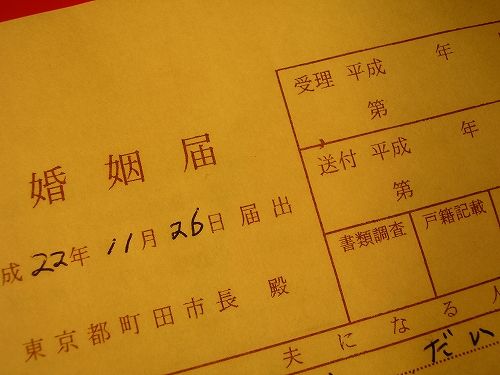 婚姻届
成22年 11月 26日 届出
東京都町田市長 殿
受理 平成 年
第
送付 平成 年
第
書類調査 戸籍記載
夫になる人
だい